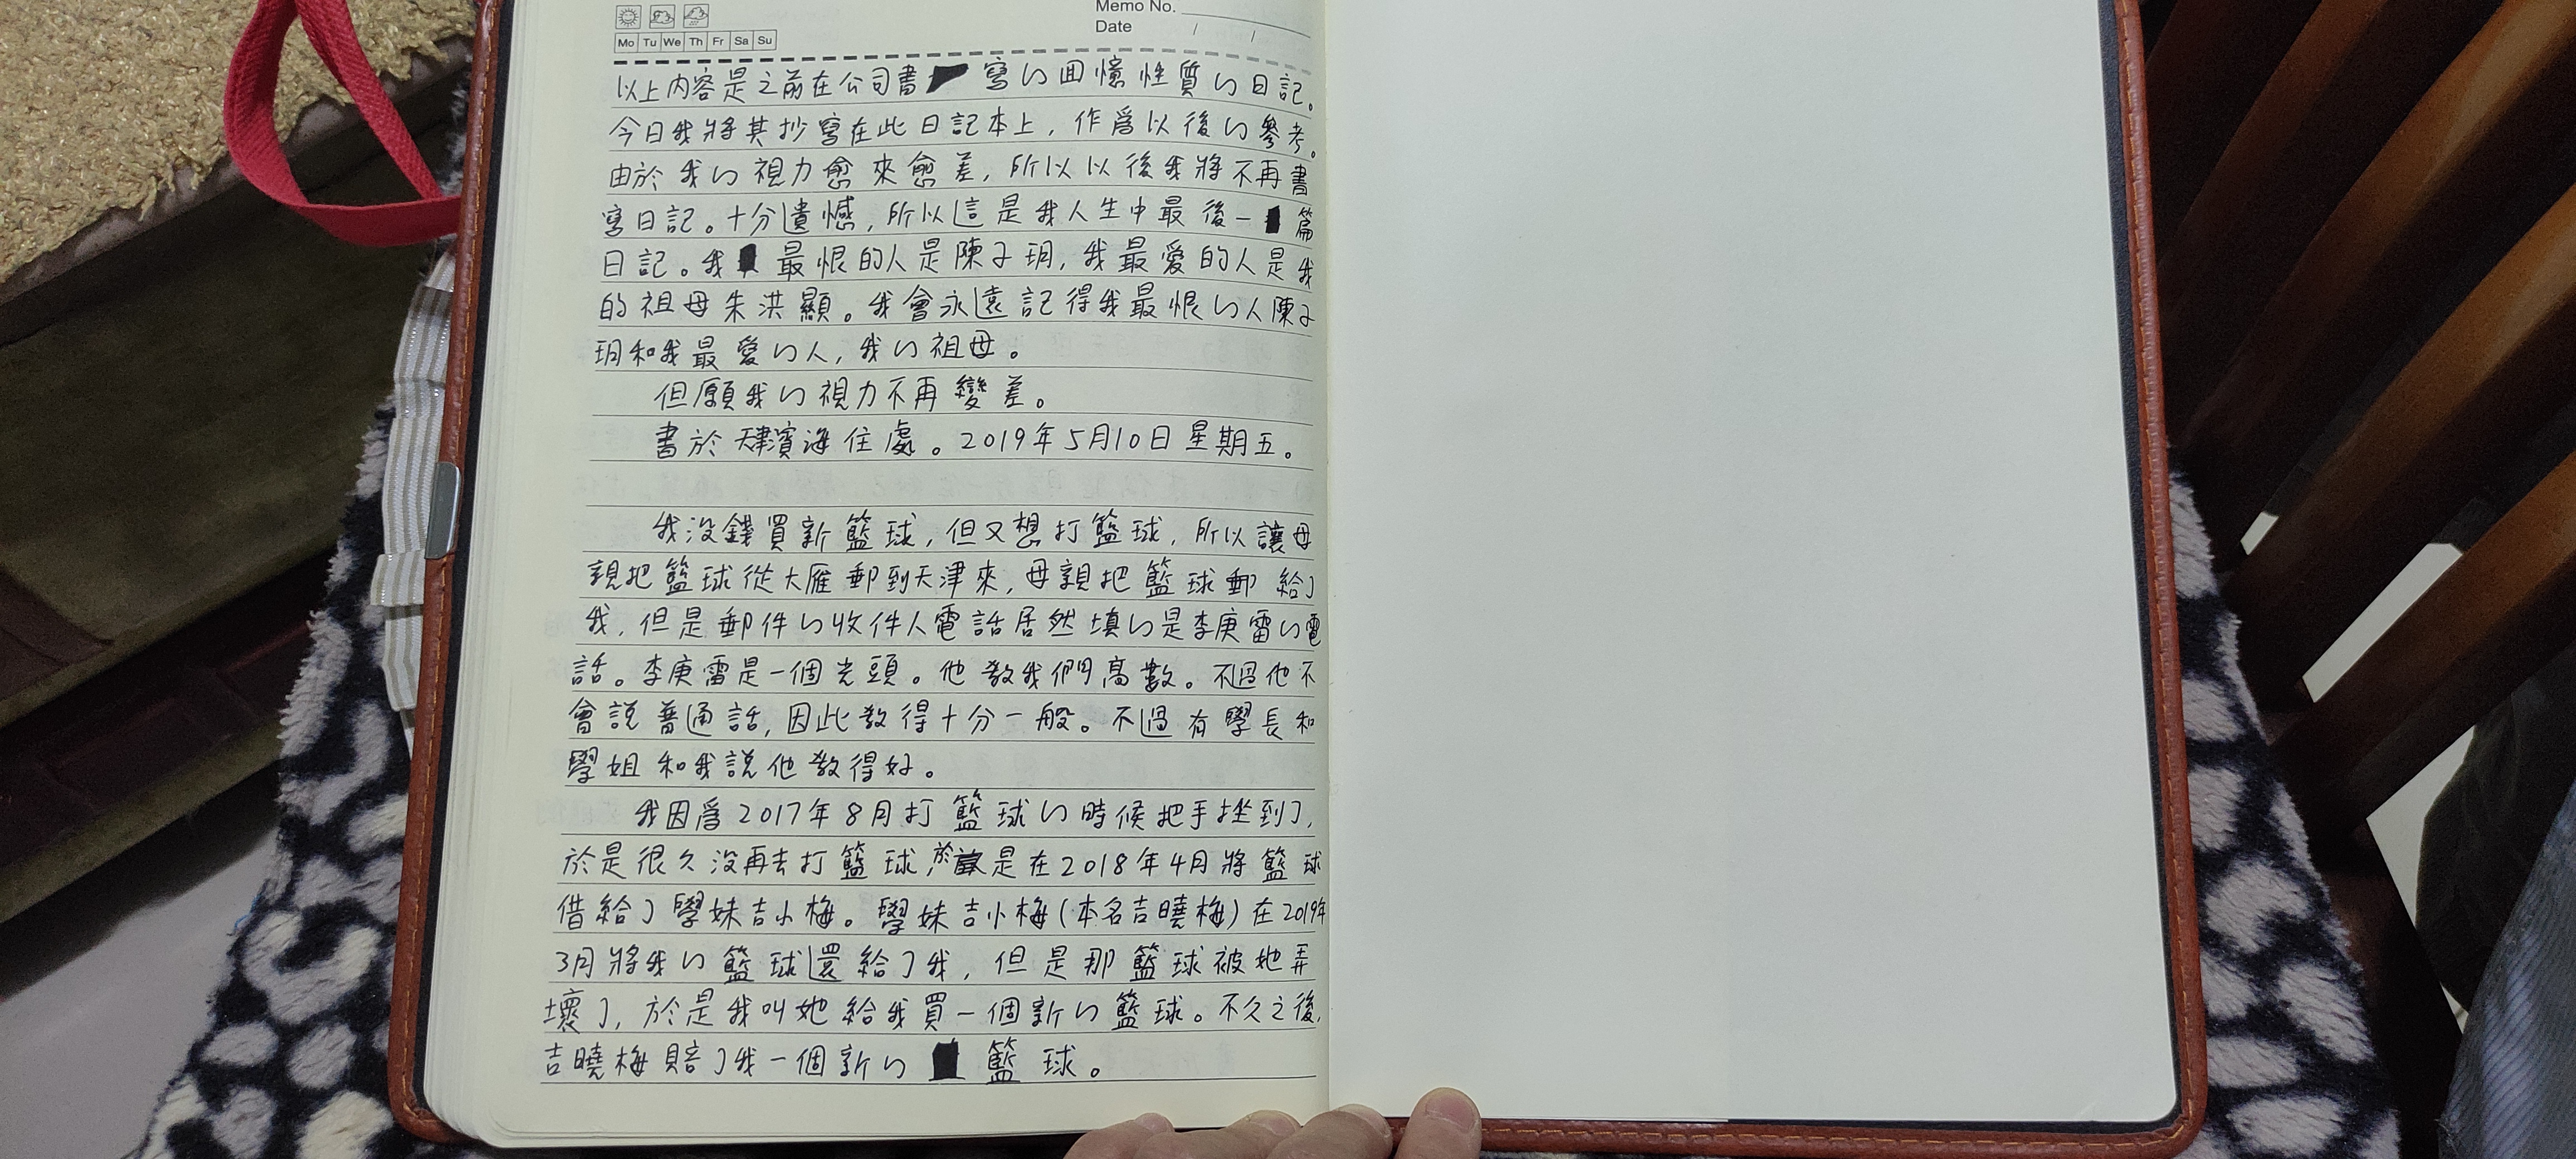 Memo No.
Date / /
Mo Tu We Th Fr Sa Su
以上内容是之前在公司書寫的回憶性質的日記。
今日我將其抄寫在此日記本上,作爲以後的參考。
由於我的視力愈來愈差,所以以後我將不再書
寫日記。十分遺憾,所以這是我人生中最後一篇
日記。我最恨的人是陳子玥,我最愛的人是我
的祖母朱洪顯。我會永遠記得我最恨的人陳子
玥和我最愛的人,我的祖母。
但願我的視力不再變差。
書於天津濱海住處。2019年5月10日星期五。
我没錢買新籃球,但又想打籃球,所以讓母
親把籃球從大雁郵到天津來,母親把籃球郵給了
我,但是郵件的收件人電話居然填的是李庚雷的電
話。李庚雷是一個光頭。他教我們高數。不過他不
會説普通話,因此教得十分一般。不過有學長和
學姐和我説他教得好。
我因爲2017年8月打籃球的時候把手挫到了,
於是很久没再去打籃球,於是在2018年4月將籃球
借給了學妹吉小梅。學妹吉小梅(本名吉曉梅)在2019年
3月將我的籃球還給了我,但是那籃球被她弄
壞了,於是我叫她給我買一個新的籃球。不久之後,
吉曉梅賠了我一個新的籃球。